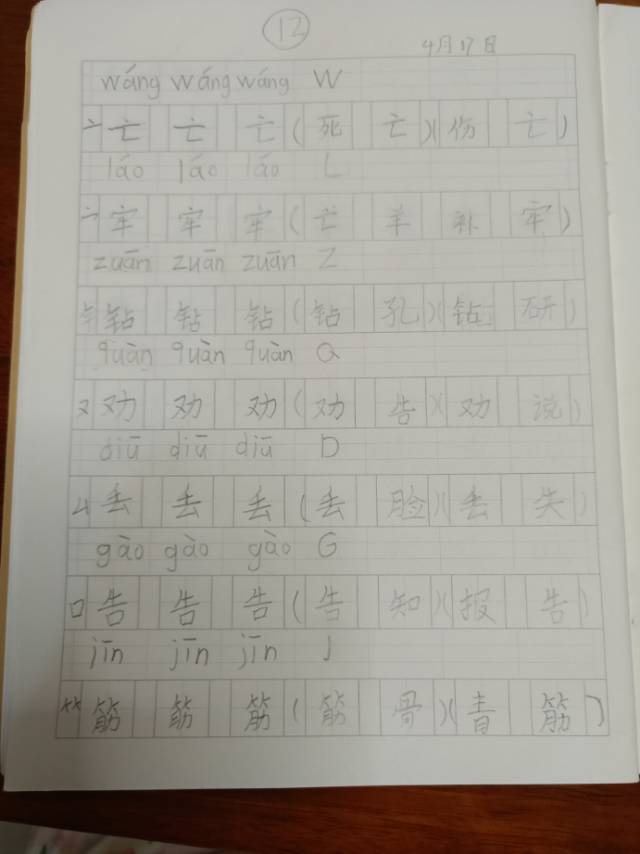 12
4月17日
wáng wáng wáng W
亠 亡 亡 亡 (死 亡)(伤 亡)
láo láo láo L
宀 牢 牢 牢 (亡 羊 补 牢)
zuān zuān zuān Z
钅 钻 钻 钻 (钻 孔)(钻 研)
quàn quàn quàn Q
又 劝 劝 劝 (劝 告)(劝 说)
diū diū diū D
厶 丢 丢 丢 (丢 脸)(丢 失)
gào gào gào G
口 告 告 告 (告 知)(报 告)
jīn jīn jīn J
⺮ 筋 筋 筋 (筋 骨)(青 筋)